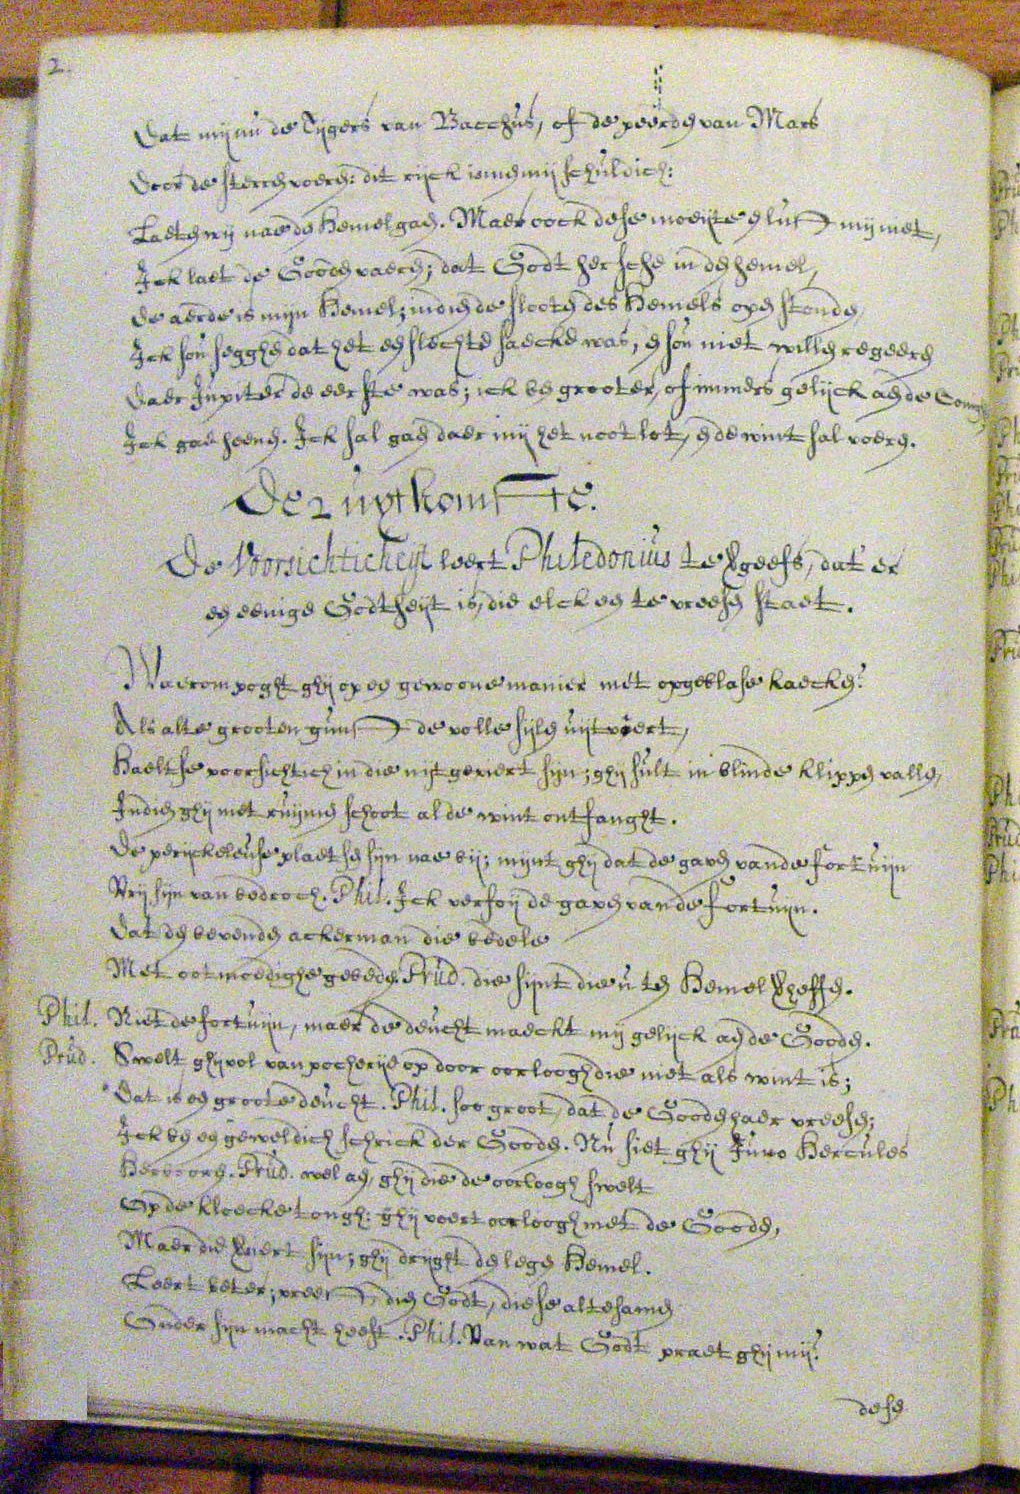 2.
Dat mij nu de Tijgers van Bacchus, of de peerden van Mars
Door de sterren voeren: dit rijck is men mij schuldich:
Laeten wij nae den Hemel gaen. Maer oock dese moeijte en lust mij niet,
Ick laet de Gooden vaeren; dat Godt hersche in den hemel,
De aerde is mijn Hemel; indien de slooten des Hemels open stonden,
Ick sou segghen dat het een slechte saecke was, en sou niet willen regeeren
Daer Jupiter de eerste was; ick ben grooter, of immers gelijck aen de
Ick gae heenen. Ick sal gaen daer mij het noot lot, en de wint sal voeren.
De 2 uytkomste.
De Voorsichticheijt leert Philedonius te vergeefs, dat er
een eenige Godtheijt is, die elck een te vreesen staet.
Waerom poght ghij op een gewoone manier met opgeblase kaecken?
Als alte grooten gunst de volle sijlen uijtvoert,
Haelt se voorsichtich in die uijt geviert sijn; ghij sult in blinde klippen vallen,
Indien ghij met ruijmen schoot al de wint ontfanght.
De perijckeleuse plaetsen sijn nae bij; mijnt ghij dat de gaven vande fortuijn
Vrij sijn van bedroch. Phil. Ick verfoij de gaven vande fortuijn.
Dat den bevenden ackerman die bedele
Met ootmoedighe gebeden. Prud. die sijnt die u ten Hemel verheffen.
Phil. Niet de fortuijn, maer de deucht maeckt mij gelijck aen de Gooden.
Prud. Swelt ghij vol van pocherije op door oorloogh die niet als wint is;
Dat is een groote deucht. Phil. soo groot, dat de Gooden haer vreesen;
Ick ben een geweldich schrick der Gooden. Nu siet ghij Juno Hercules
Herbooren. Prud. wel aen, ghij die de oorloogh swelt
Op de kloecke tongh: ghij voert oorloogh met de Gooden,
Maer die versiert sijn; ghij dryght den legen Hemel.
Leert beter; vreest dien Godt, die se altesamen
Onder sijn macht heeft. Phil. Van wat Godt praet ghij mij?
desen